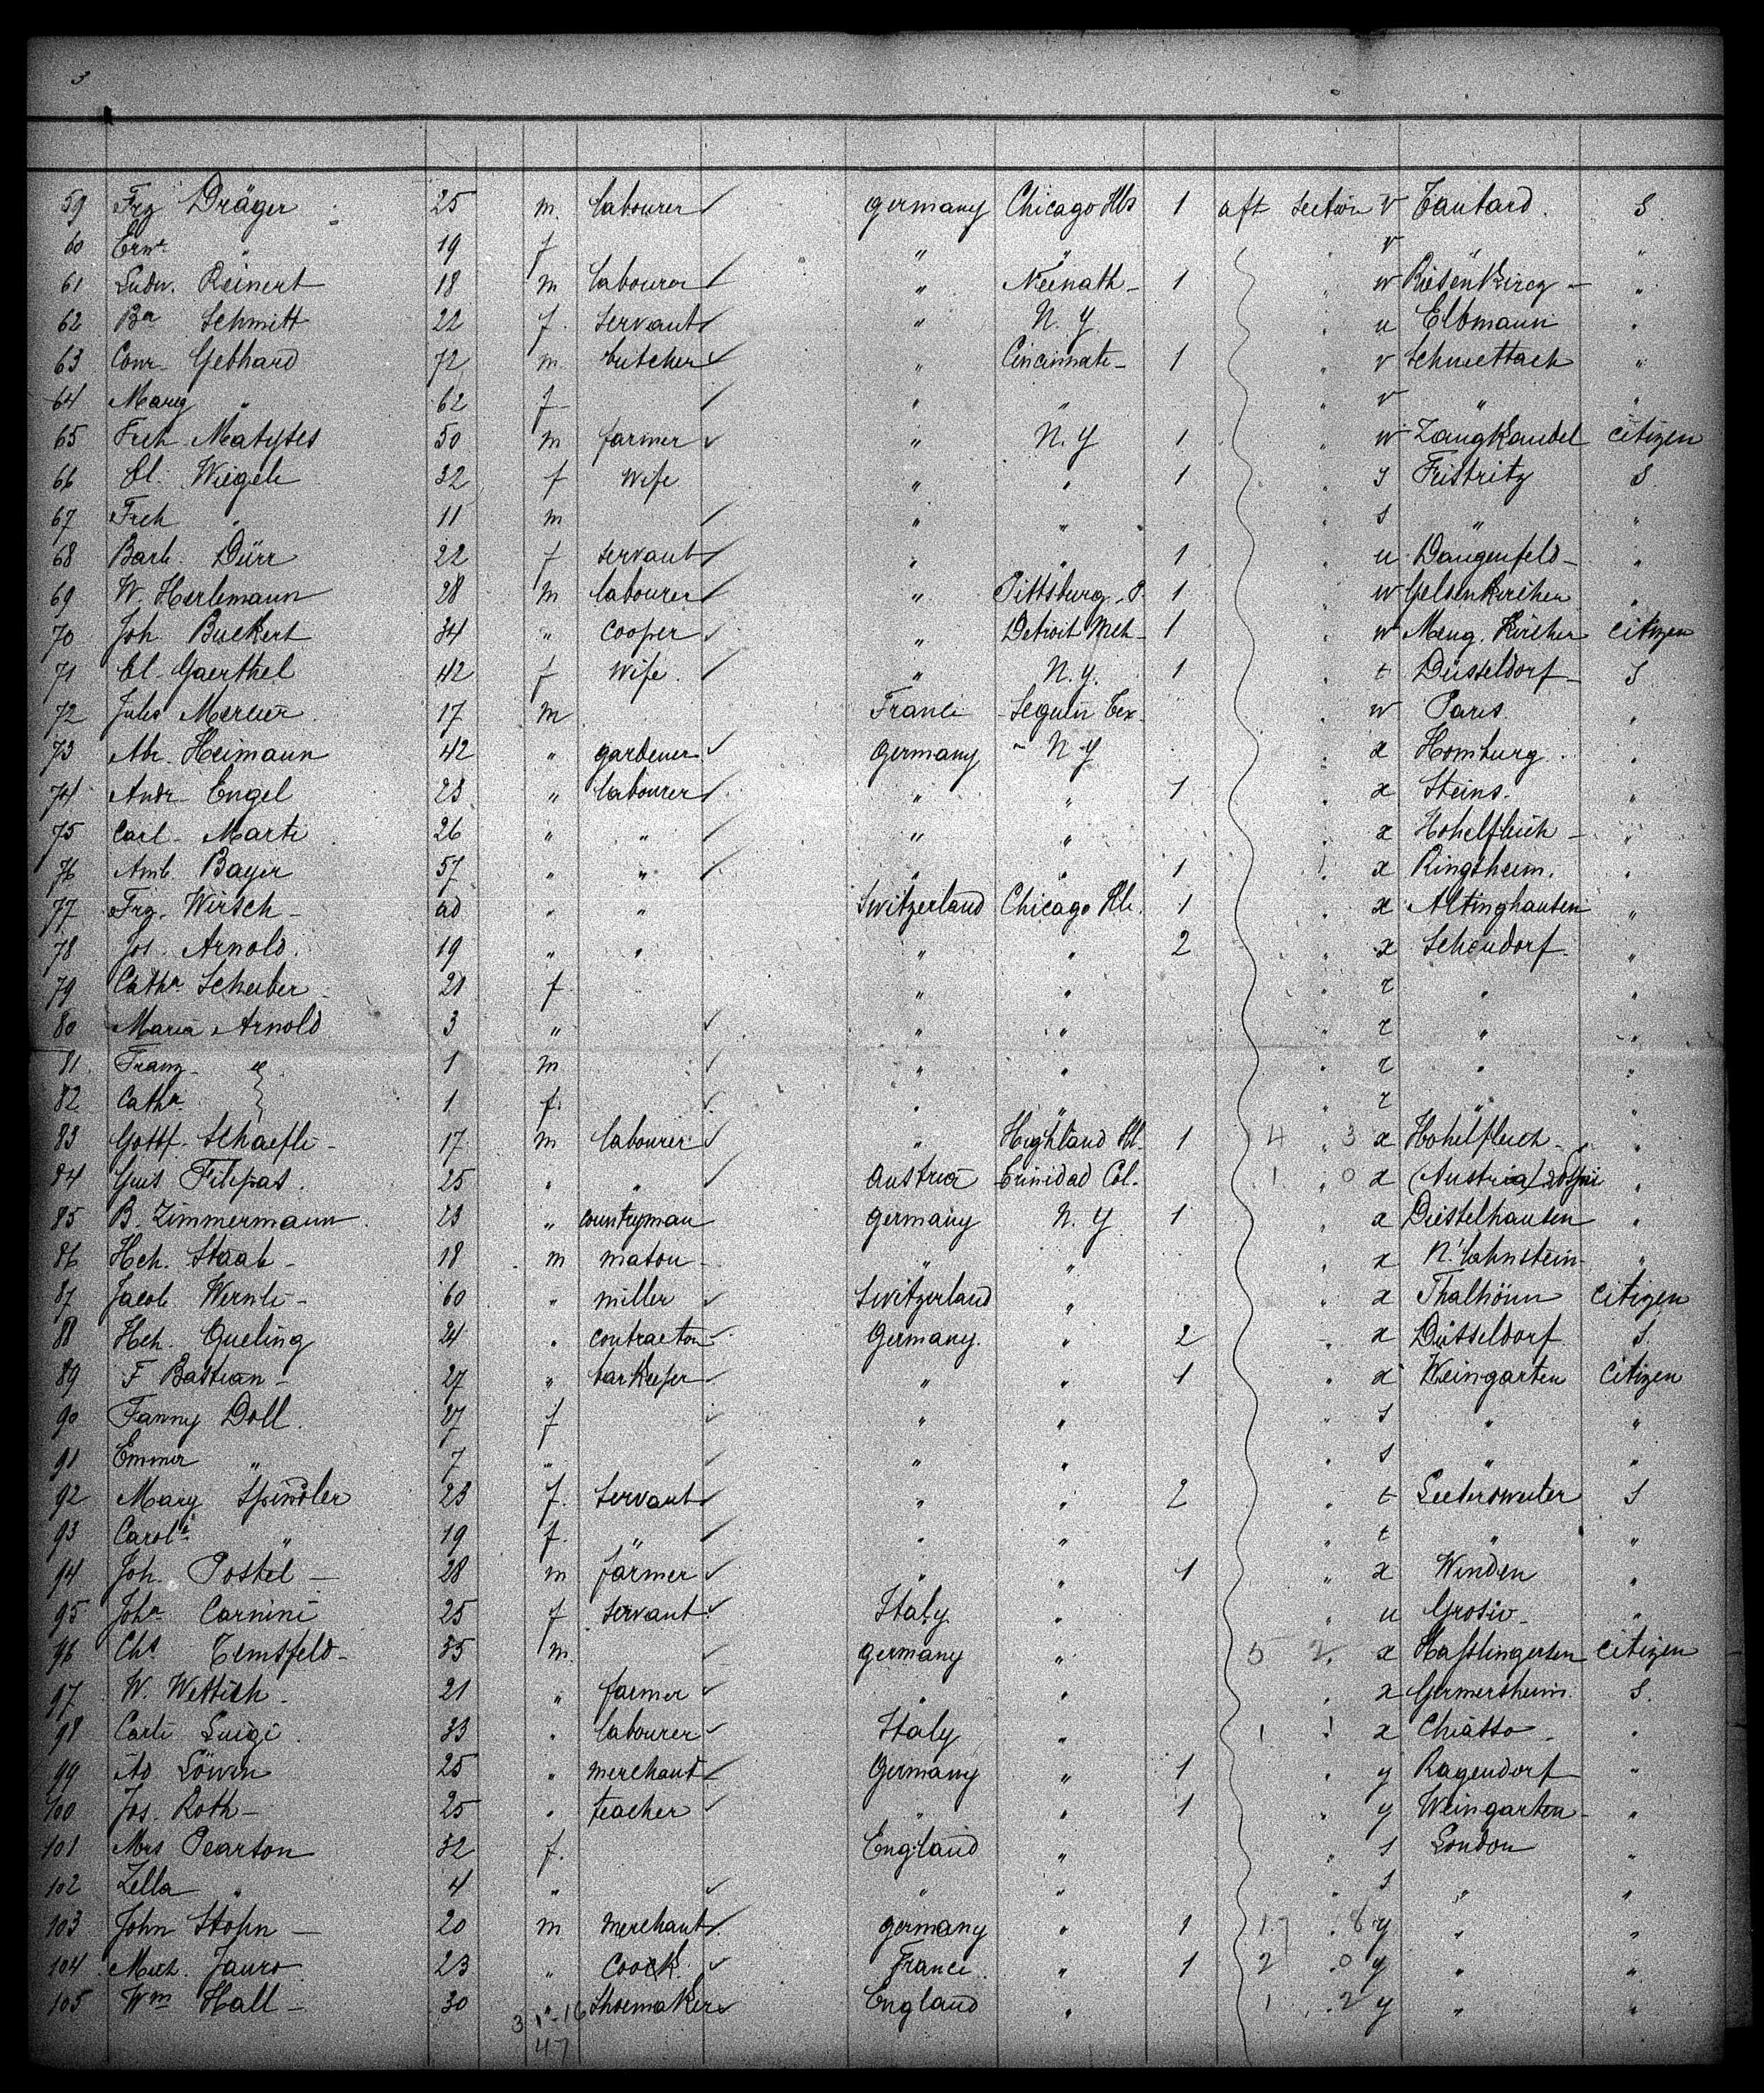 3
59 Frz Dräger 25 m. labourer ✓ Germany Chicago Ills 1 aft section v Tautard. S.
60 Erns " 19 f " " v " "
61 Ludw. Reinert 18 m labourer ✓ " Neenath - 1 " w "
62 Ba Schmitt 22 f. servant ✓ " N.Y. " u Elbmann "
63 Conr. Gebhard 72 m. butcher ✓ " Cincinnati - 1 " v Schnettach "
64 Marg " 62 f ✓ " " " v " "
65 Frch Matystes 50 m farmer ✓ " N.Y 1 " w Langkandel citizen
66 El. Wiegele 32 f wife " " 1 " s Fristritz S.
67 Frch " 11 m ✓ " " " s " "
68 Barb. Dürr 22 f servant ✓ " " 1 " u Dangenfeld - "
69 W. Herlemann 28 m labourer ✓ " Pittsburg. P. 1 " w Gelsenkirchen "
70 Joh. Buckert 34 " cooper ✓ " Detroit Mch - 1 " w Meng. Kircher citizen
71 El. Gaerthel 42 f wife. ✓ " N.Y. 1 " t Düsseldorf - S
72 Jules Mercier 17 m France Seguin Tex. " w Paris. "
73 Abr. Heimann 42 " gardener ✓ Germany N.Y " x Homburg. "
74 Andr. Engel 23 " labourer ✓ " " 1 " x Steins. "
75 Carl. Marti 26 " " ✓ " " " x Hohelfluch - "
76 Amb. Bayer 57 " " ✓ " " 1 " x Ringsheim. "
77 Frz. Wirsch - 20 " " Switzerland Chicago Ills. 1 " x Altinghausen "
78 Jos. Arnold. 19 " " " " 2 " x Schendorf. "
79 Catha Scheiber 21 f. " " " r " "
80 Maria Arnold 3 " ✓ " " " r " "
81 Franz - 1 m ✓ " " " r " "
82 Catha 1 f. ✓ " " " r " "
83 Gottf. Schaefli - 17 m labourer ✓ " Highland Ill. 1 4 " 3 x Hohelfluch - "
84 Filipas. 25 " " ✓ Austria Trinidad Col. 1 " 0 x (Austria) "
85 B. Zimmermann 23 " countryman Germany N.Y 1 x Distelhausen "
86 Hch. Staab - 18 m mason - " " " x N. Lahnstein - "
87 Jacob Wernli - 60 " miller ✓ Switzerland " " x Thalhönn citizen
88 Hch. Queling 24 " contractor ✓ Germany. " 2 x Düsseldorf S.
89 F Bastian - 27 " barkeeper ✓ " " 1 " x Weingarten citizen
90 Fanny Doll. 27 f ✓ " " " s " "
91 Emmer " 7 " ✓ " " s " "
92 Mary Spindler 23 f. servant ✓ " " 2 " t S
93 Carole " 19 f. " ✓ " " " t " "
94 Joh. Postel - 28 m farmer ✓ " " 1 " x Winden "
95 Joha Carnini 25 f servant ✓ Italy. " " u Grosio - "
96 Chs Temsfeld - 35 m. ✓ Germany " 5 2. x Hasslingersen citizen
97 W. Wettich - 21 " farmer ✓ " " " x Germersheim. S.
98 Carli Luigi. 33 " labourer ✓ Italy " 1 1 x Chiasso. "
99 Ad Löwin 25 " merchant ✓ Germany " 1 " y Ragendorf "
100 Jos. Roth - 25 " teacher ✓ " " 1 " y Weingarten - "
101 Mrs Pearson 32 f. England " " s London "
102 Zella " 4 " ✓ " " " s " "
103 John Stopn - 20 m merchant ✓ Germany " 1 17 " 8 y " "
104 Mich. Jauro 23 " Coock. ✓ France. " 1 2 " 0 y " "
105 Wm Hall - 30 " Shoemaker ✓ England " 1 . 2 y " "
47